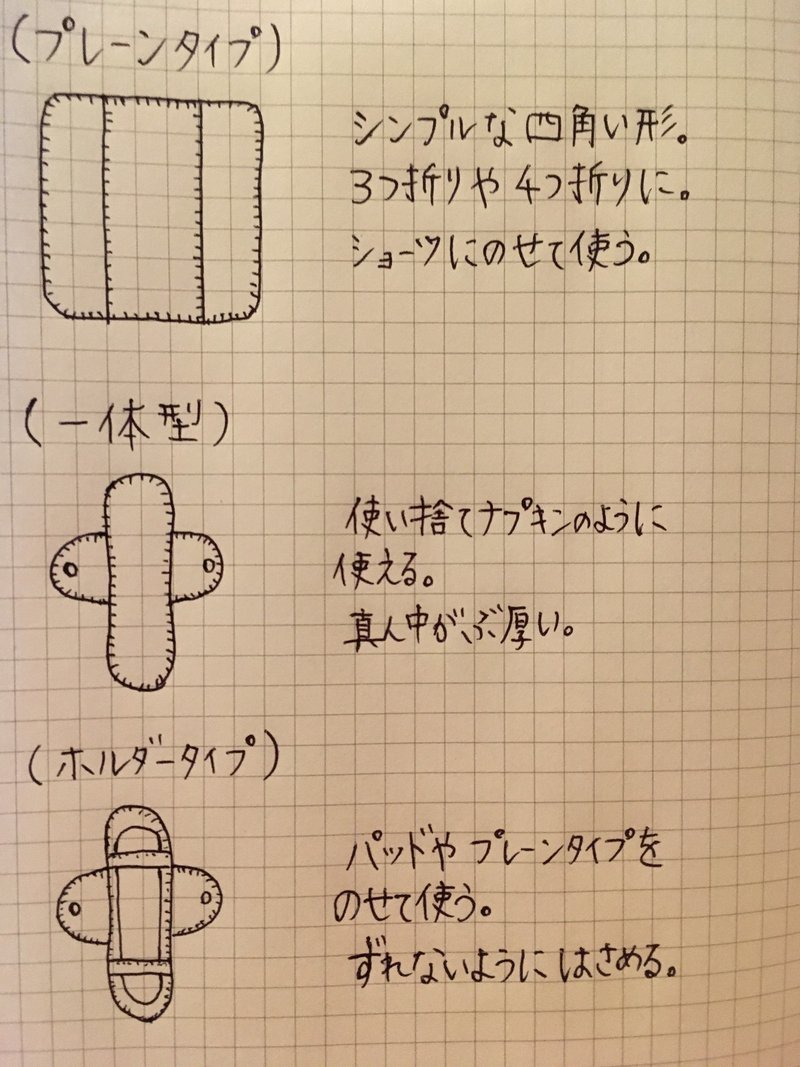 (プレーンタイプ)
シンプルな四角い形。
3つ折りや4つ折りに。
ショーツにのせて使う。
(一体型)
使い捨てナプキンのように
使える。
真ん中がぶ厚い。
(ホルダータイプ)
パッドやプレーンタイプを
のせて使う。
ずれないようにはさめる。